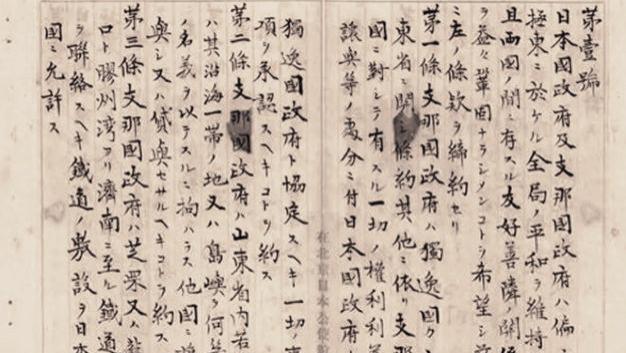 第壹號
日本國政府及支那國政府ハ偏
極東ニ於ケル全局ノ平和ヲ維持
且兩國ノ間ニ存スル友好善隣ノ關係
ヲ益々鞏固ナラシメンコトヲ希望シ
ニ左ノ條款ヲ締約セリ
第一條支那國政府ハ獨逸國カ
東省ニ關シ條約其他ニ依リ支那
國ニ對シテ有スル一切ノ權利利益
讓與等ノ處分ニ付日本國政府カ
在北京日本公使館
獨逸國政府ト協定スヘキ一切ノ事
項ヲ承認スヘキコトヲ約ス
第二條支那國政府ハ山東省內若
ハ其沿海一帶ノ地又ハ島嶼ヲ何等
ノ名義ヲ以テスルニ拘ハラス他國ニ讓
與シ又ハ貸與セサルヘキコトヲ約ス
第三條支那國政府ハ芝罘又ハ龍
口ト膠州灣ヨリ濟南ニ至ル鐵道
ヲ聯絡スヘキ鐵道ノ敷設ヲ日本
國ニ允許ス